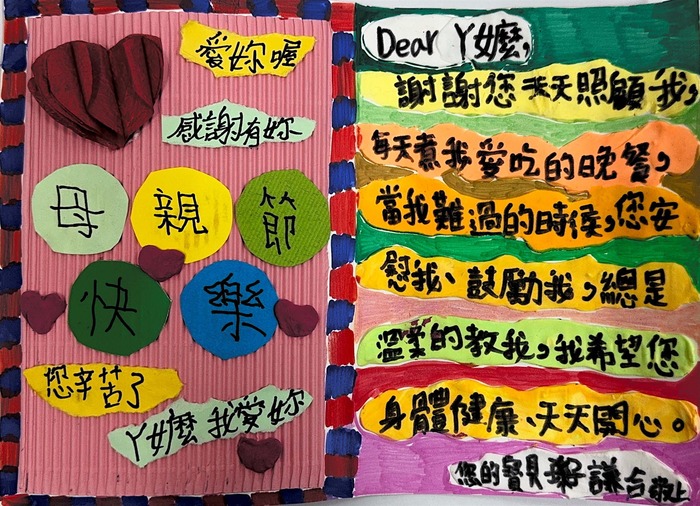 愛妳喔
感謝有妳
母親節
快樂
您辛苦了
ㄚ嬤 我愛妳
Dear ㄚ嬤,
謝謝您天天照顧我,
每天煮我愛吃的晚餐,
當我難過的時候,您安
慰我、鼓勵我,總是
溫柔的教我,我希望您
身體健康、天天開心。
您的寶貝 謙 敬上